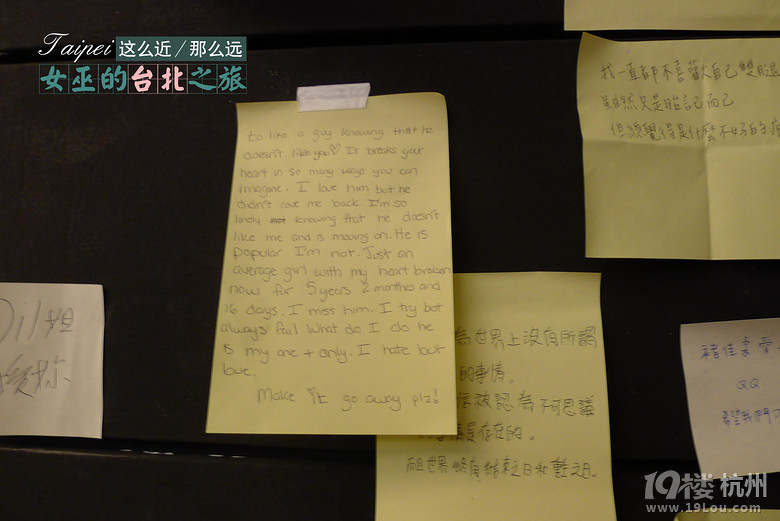 Taipei 这么近/那么远
女巫的台北之旅
to like a guy knowing that he
doesn't like you♡ It breaks your
heart in so many ways you can
imagine. I love him but he
didn't love me back. I'm so
lonely knowing that he doesn't
like me and is moving on. He is
popular I'm not. Just an
average girl with my heart broken
now for 5 years 2 monthes and
16 days. I miss him. I try but
always fail. What do I do he
is my one + only. I hate but
love.
Make it go away plz!
我一直都不喜歡太自己
雖然又是胎記而已
但總覺得是什麼不好的
為世界上沒有所謂
的事情。
被認為不可思議
是存在的。
而且世界終有結束之日
QQ
希望我們
19楼 杭州
www.19Lou.com